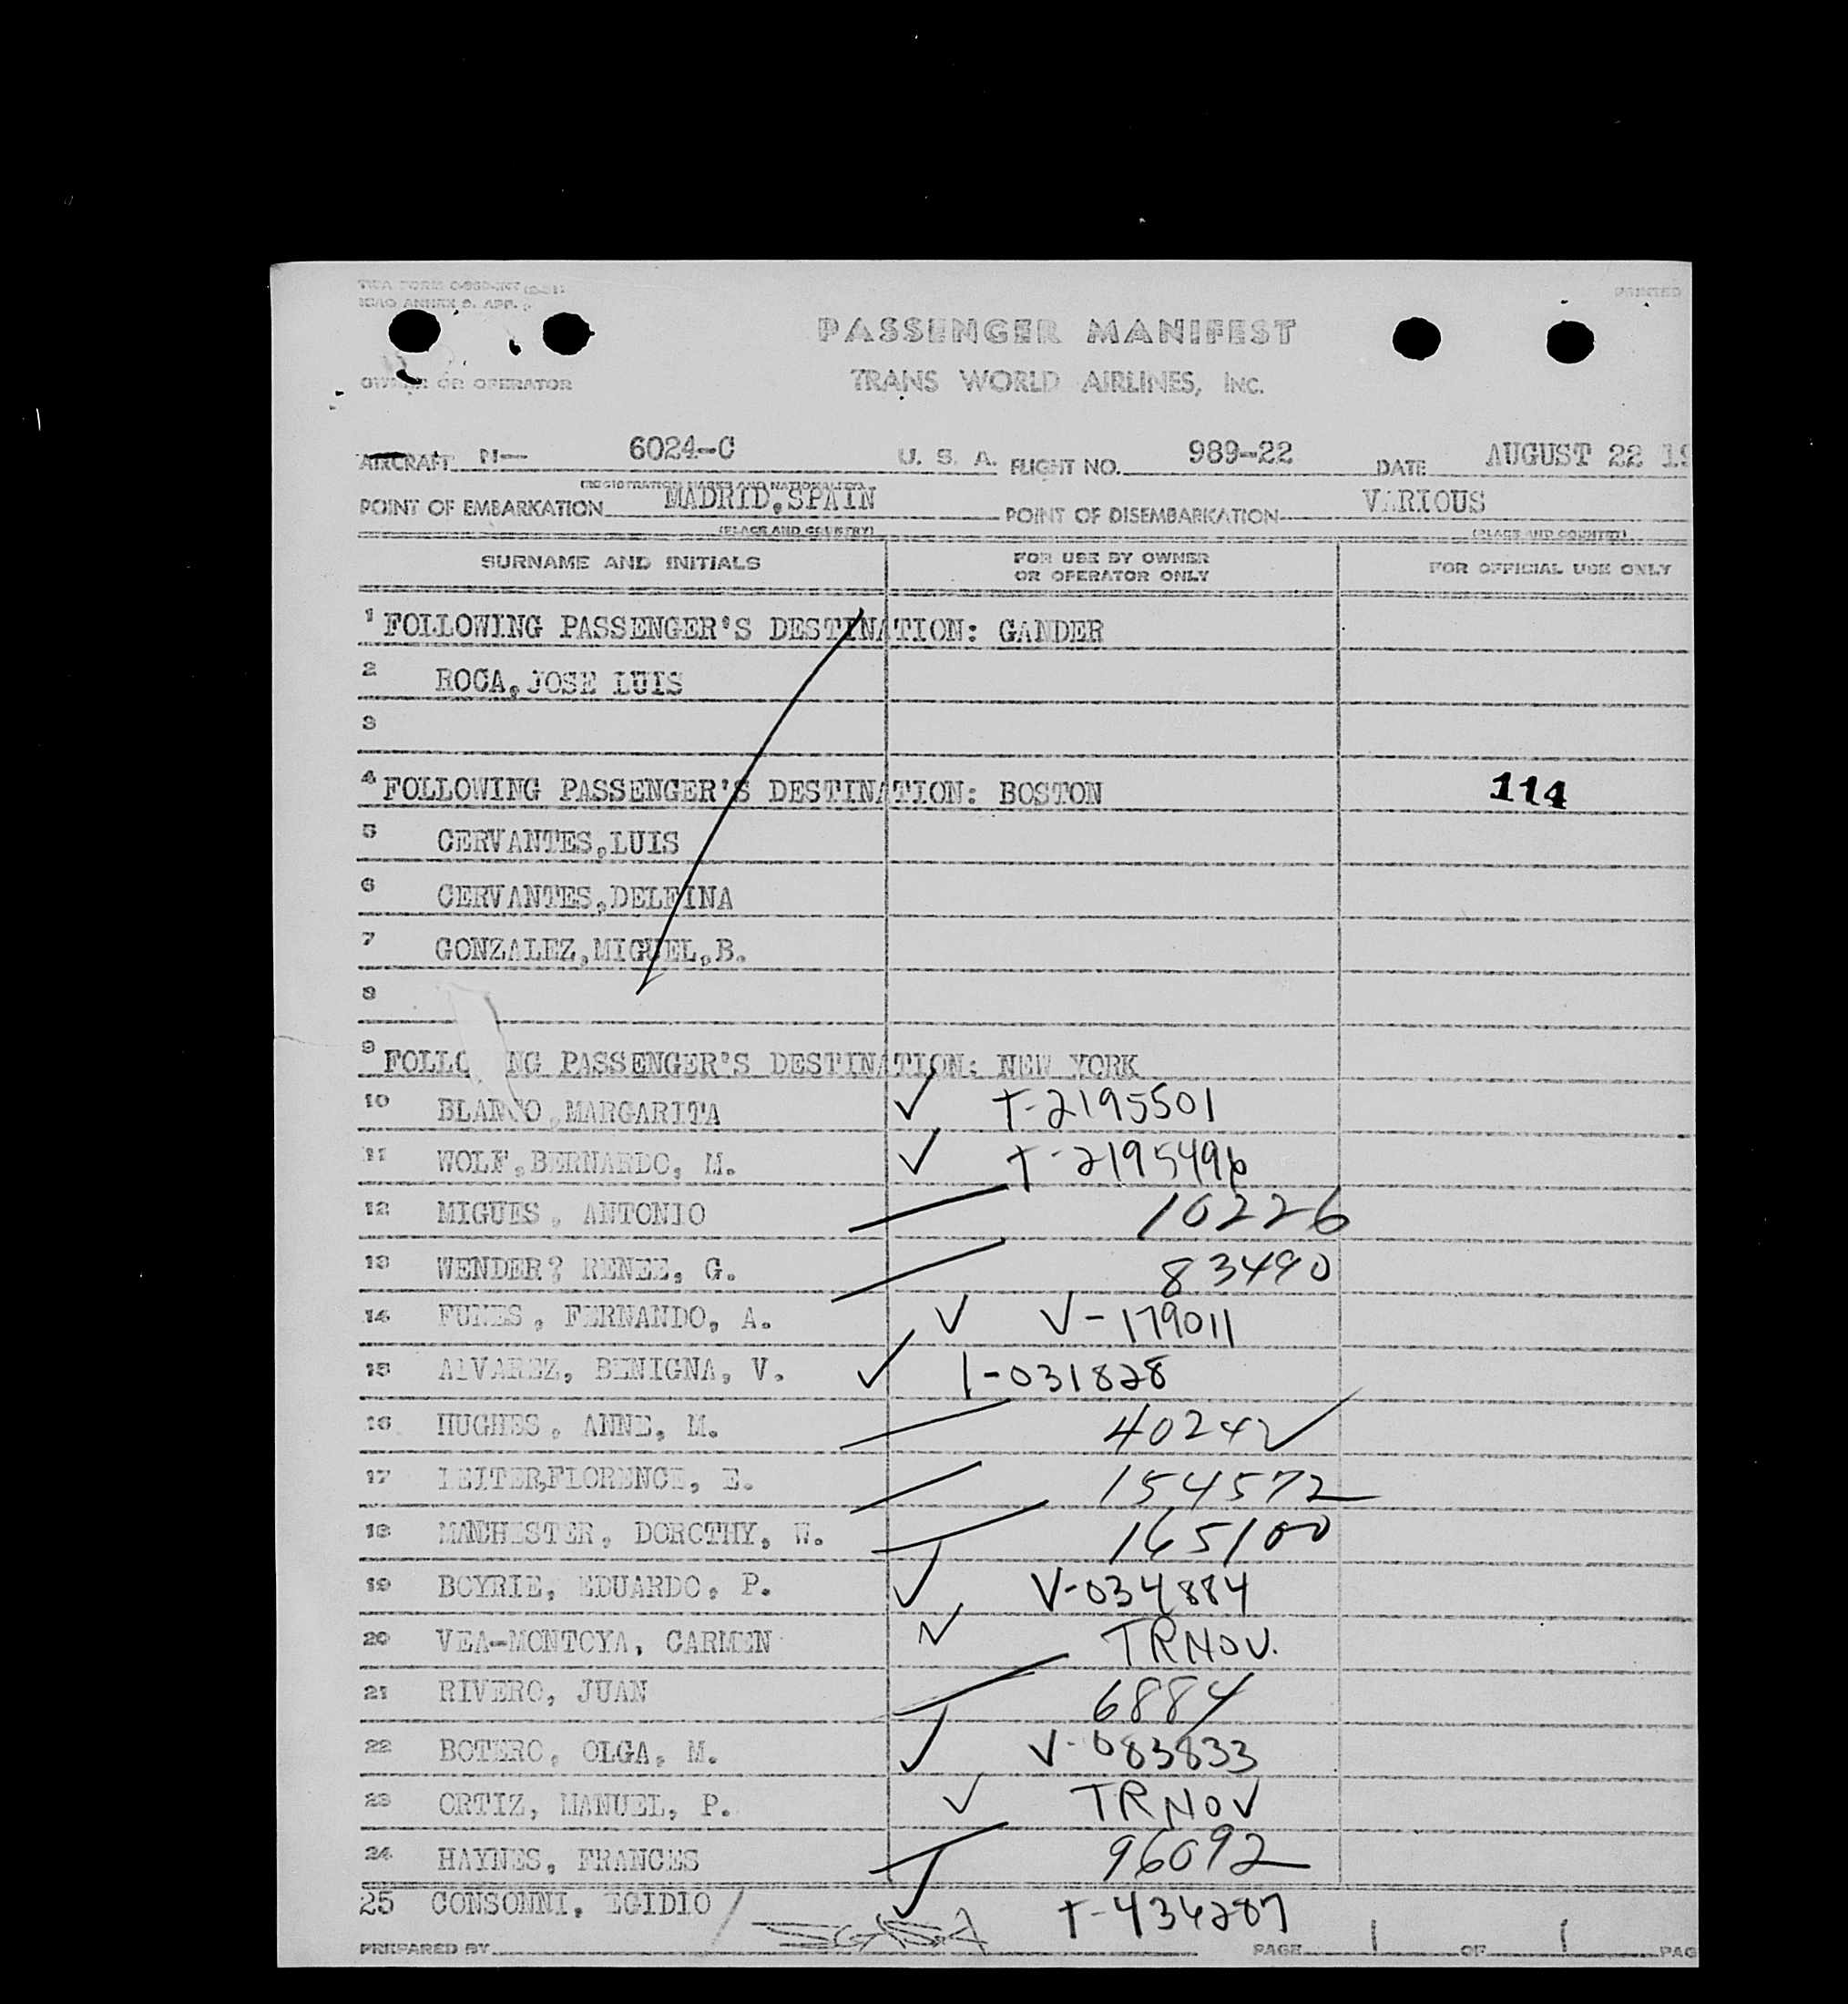 TWA FORM
ICAO ANNEX 9, APP.
PRINTED
PASSENGER MANIFEST
OWNER OR OPERATOR TRANS WORLD AIRLINES, INC.
AIRCRAFT N— 6024-C U. S. A. FLIGHT NO. 989-22 DATE AUGUST 22 19
(REGISTRATION MARKS AND NATIONALITY)
POINT OF EMBARKATION MADRID,SPAIN POINT OF DISEMBARKATION VARIOUS
(PLACE AND COUNTRY) (PLACE AND COUNTRY)
SURNAME AND INITIALS FOR USE BY OWNER OR OPERATOR ONLY FOR OFFICIAL USE ONLY
1 FOLLOWING PASSENGER'S DESTINATION: GANDER
2 ROCA,JOSE LUIS
3
4 FOLLOWING PASSENGER'S DESTINATION: BOSTON 114
5 CERVANTES,LUIS
6 CERVANTES,DELFINA
7 GONZALEZ,MIGUEL,B.
8
9 FOLLO NG PASSENGER'S DESTINATION: NEW YORK
10 BLANCO,MARGARITA ✓ T-2195501
11 WOLF,BERNARDO, M. ✓ T-2195496
12 MIGUES, ANTONIO 10226
13 WENDER? RENEE, G. 83490
14 FUNES, FERNANDO, A. ✓ V-179011
15 ALVAREZ, BENIGNA, V. ✓ I-031828
16 HUGHES, ANNE, M. 40242
17 LEITER,FLORENCE, E. 154572
18 MANCHESTER, DOROTHY, W. 165100
19 BOYRIE, EDUARDO, P. ✓ V-034884
20 VEA-MONTOYA, CARMEN ✓ TRNOV.
21 RIVERO, JUAN 6884
22 BOTERO, OLGA, M. ✓ V-083833
23 ORTIZ, MANUEL, P. ✓ TRNOV
24 HAYNES, FRANCES 96092
25 CONSONNI, EGIDIO ✓ T-434287
PREPARED BY PAGE 1 OF 1 PAG